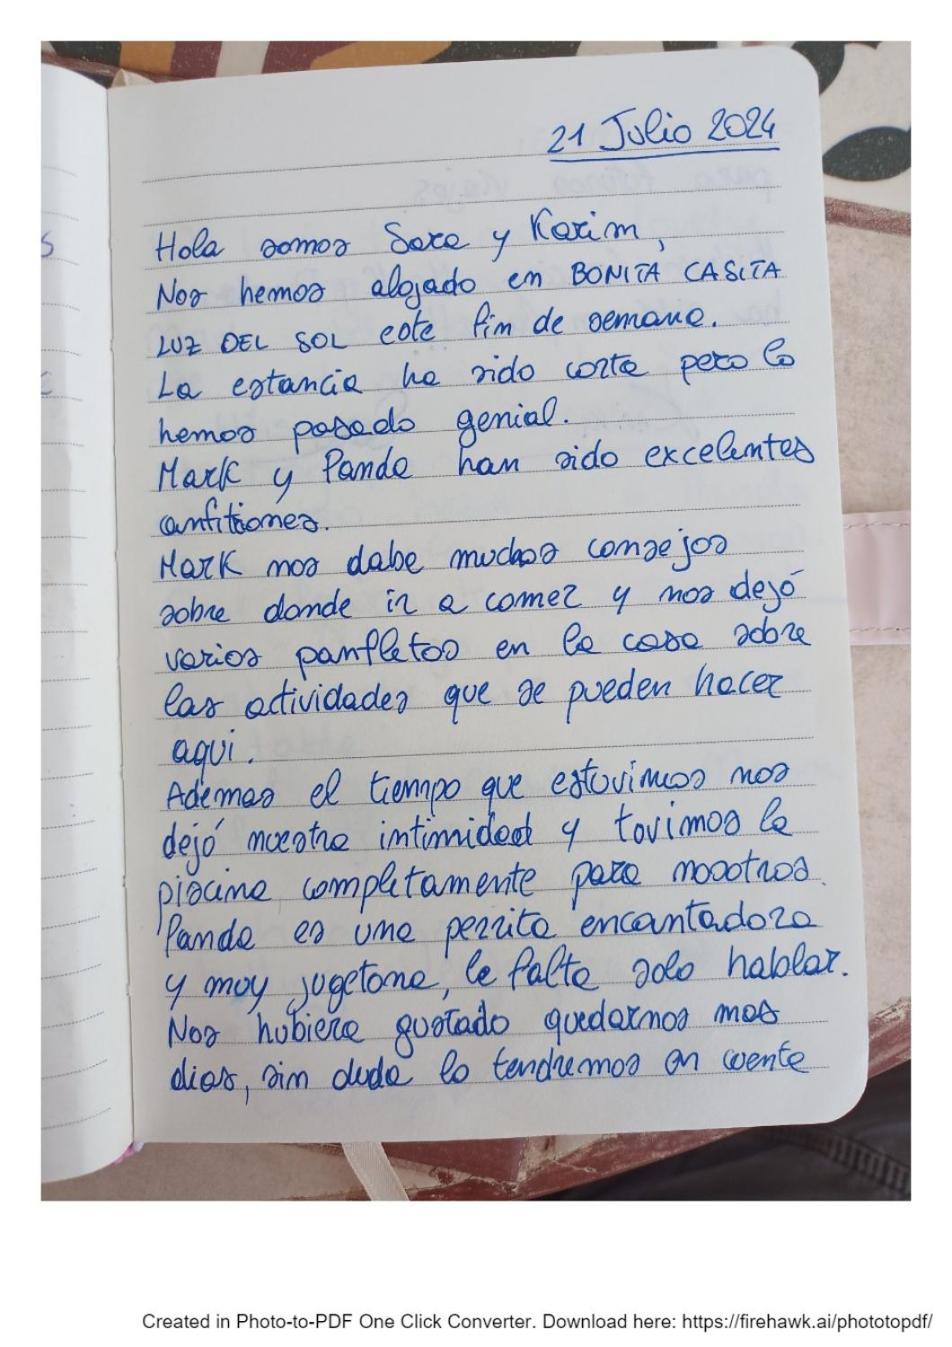 21 Julio 2024
Hola somos Sara y Karim,
Nos hemos alojado en BONITA CASITA
LUZ DEL SOL este fin de semana.
La estancia ha sido corta pero lo
hemos pasado genial.
Mark y Panda han sido excelentes
anfitriones.
Mark nos daba muchos consejos
sobre donde ir a comer y nos dejó
varios panfletos en la casa sobre
las actividades que se pueden hacer
aqui.
Ademas el tiempo que estuvimos nos
dejó nuestra intimidad y tuvimos la
piscina completamente para nosotros.
Panda es una perrita encantadora
y muy jugetona, le falta solo hablar.
Nos hubiera gustado quedarnos mas
dias, sin duda lo tendremos en cuenta
S
Created in Photo-to-PDF One Click Converter. Download here: https://firehawk.ai/phototopdf/